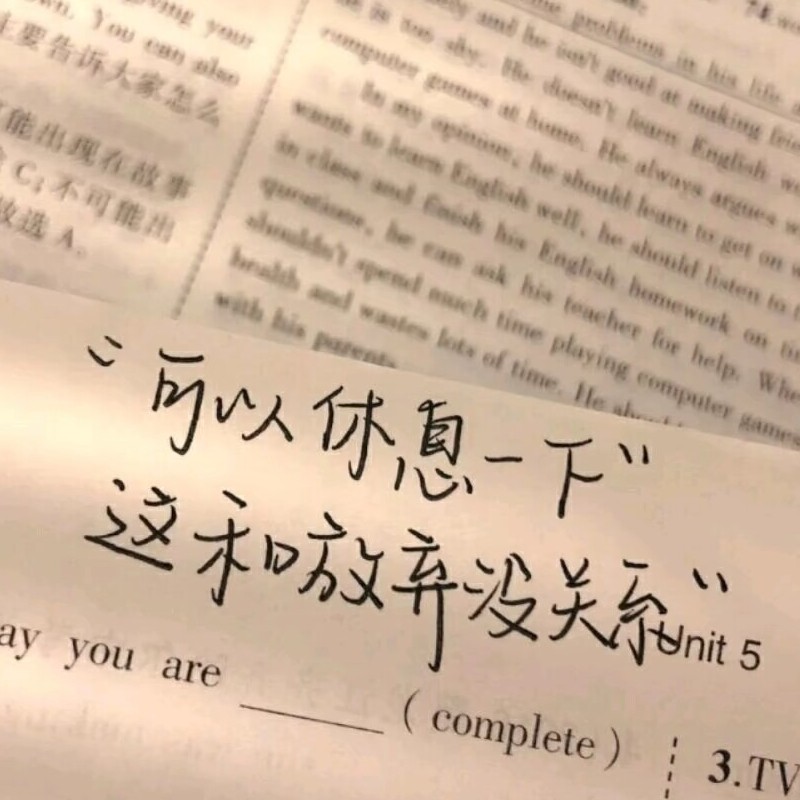 giving your
own. You can also
主要告诉大家怎么
可能出现在故事
C; 不可能出
故选 A.
the problems in his life
and he isn't good at making
is too shy. He doesn't learn English
computer games at home. He always argues
In my opinion, he should learn to get on
wants to learn English well, he should listen to
in class and finish his English homework on
questions, he can ask his teacher for help.
shouldn't spend much time playing computer games
health and wastes lots of time. He
with his parents.
“可以休息一下”
这和放弃没关系”
Unit 5
ay you are ______ ( complete )
3. TV